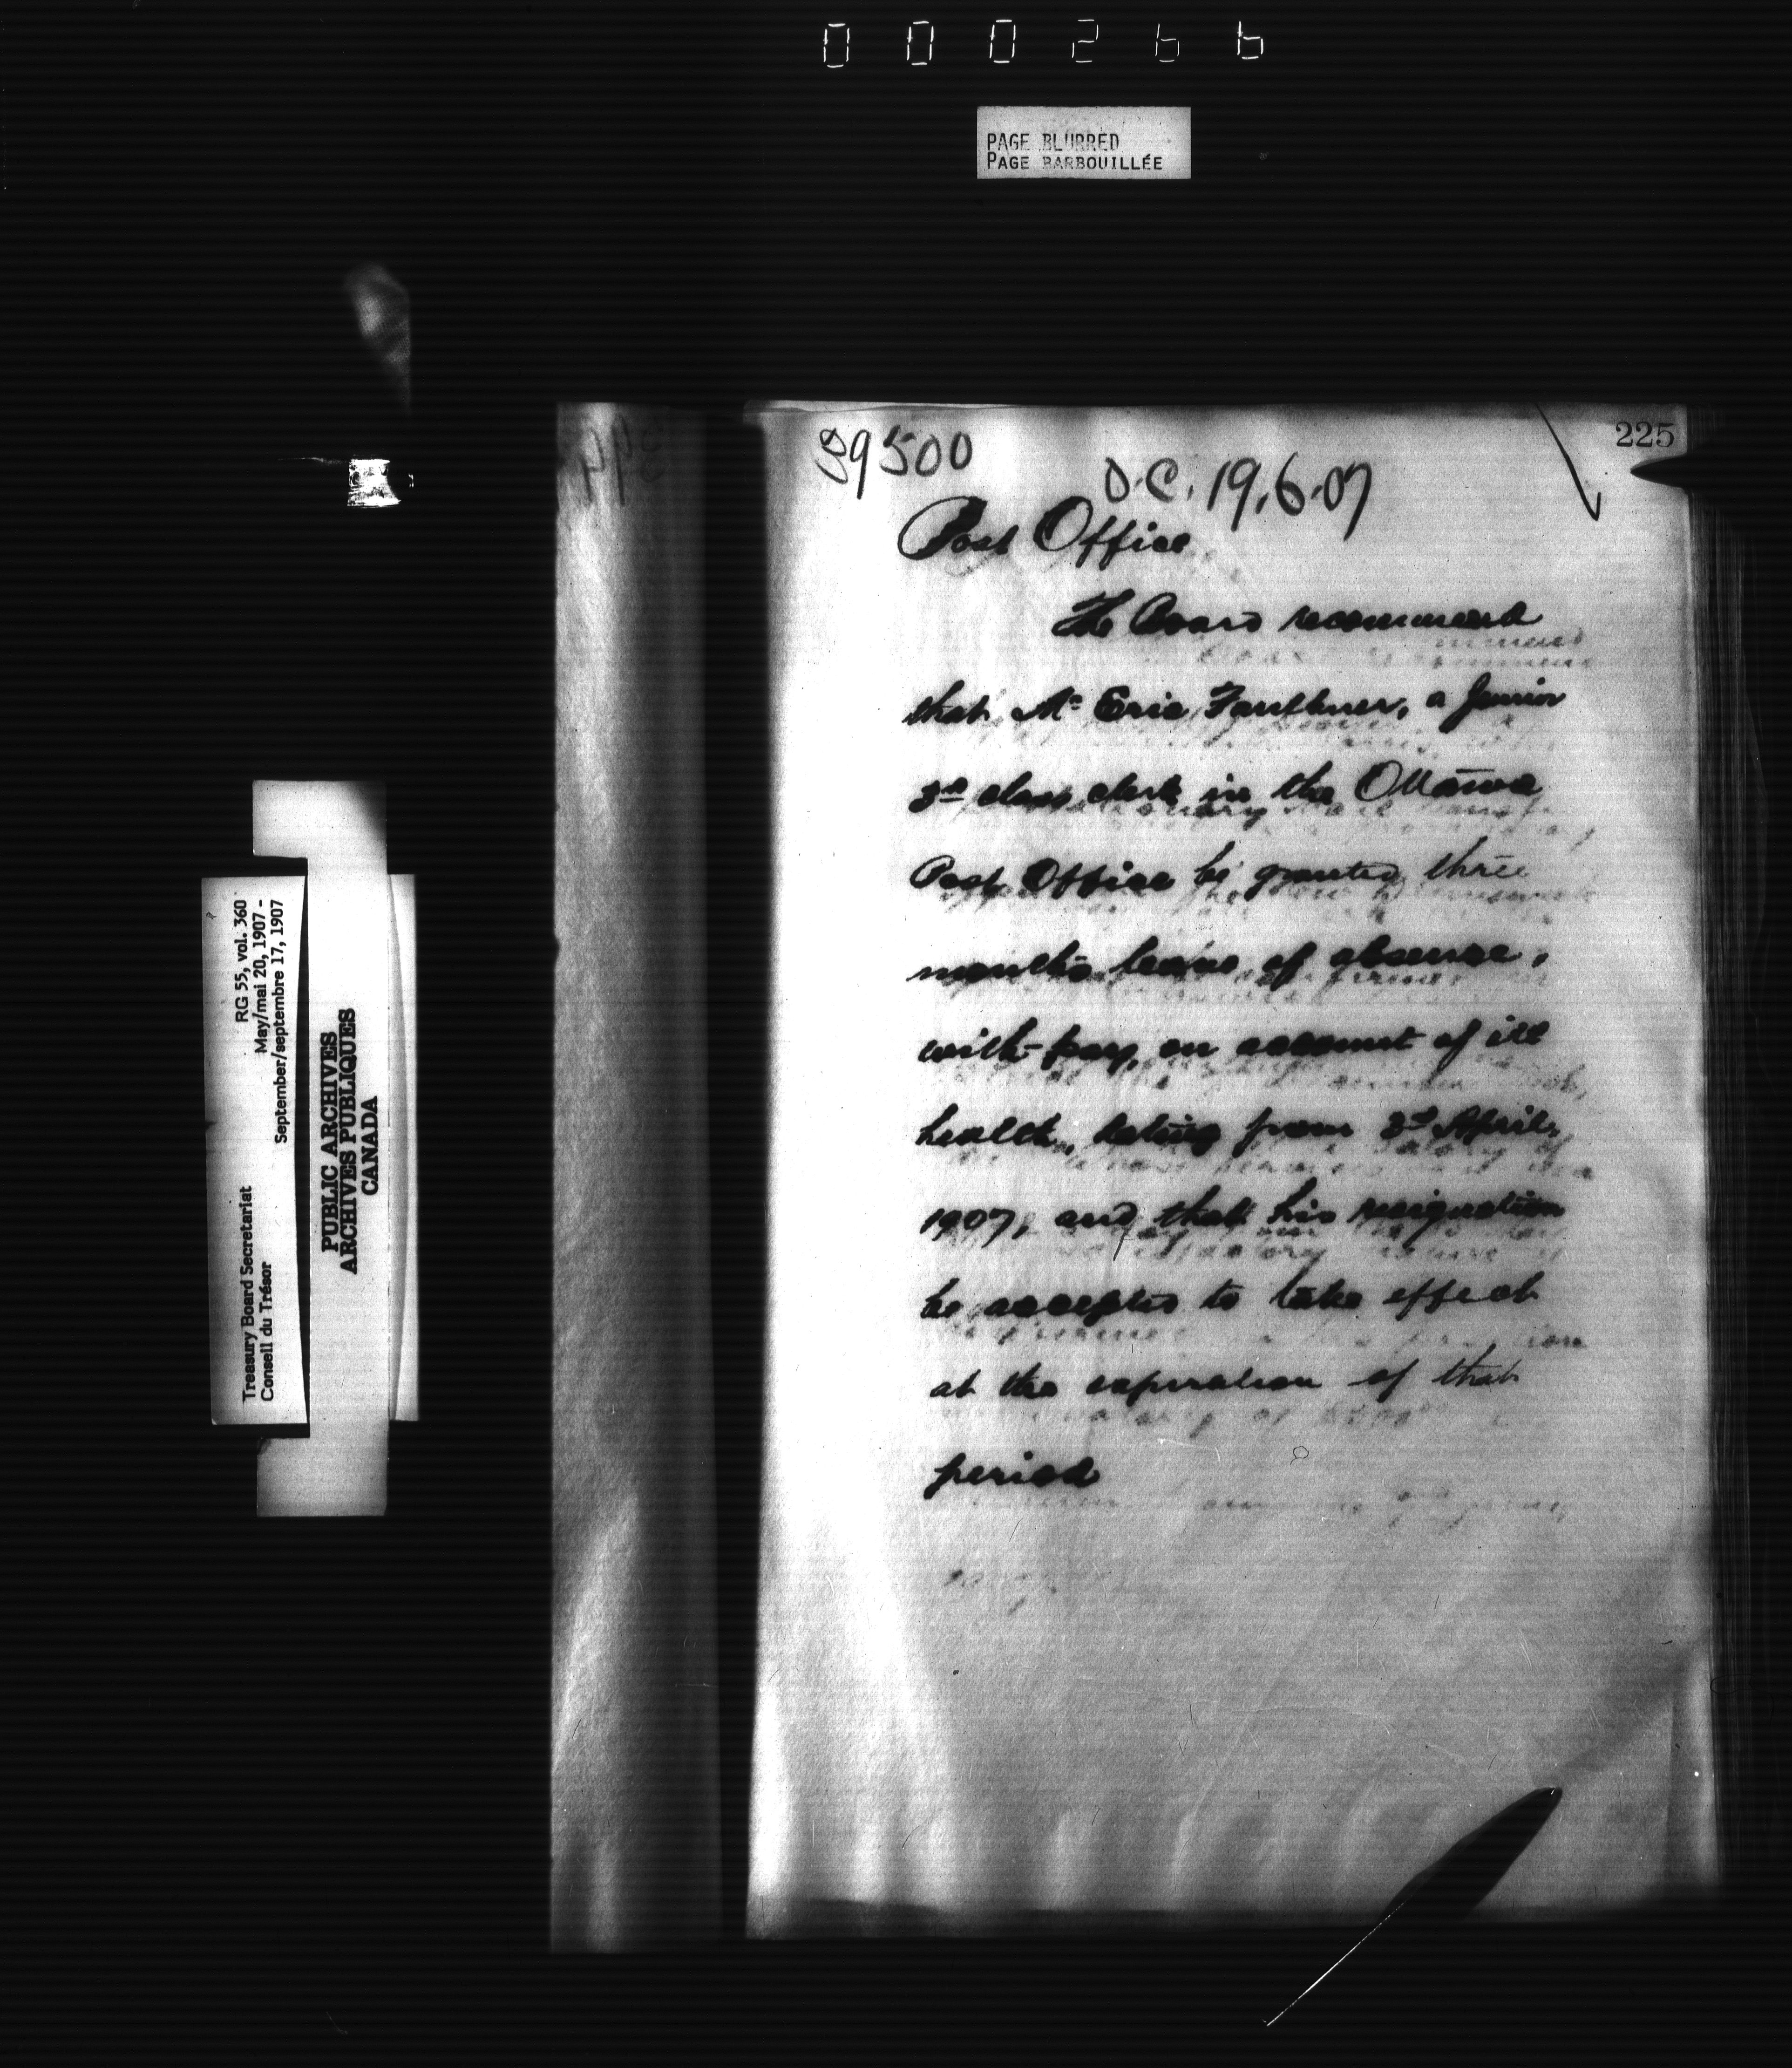 000266
PAGE BLURRED
PAGE BARBOUILLÉE
225
39500
O.C. 19.6.07
Post Office
The Board recommend
that Mr Eric Faulkner, a Junior
3rd class clerk in the Ottawa
Post Office be granted three
months leave of absence,
with pay, on account of ill
health, dating from 3rd April,
1907, and that his resignation
be accepted to take effect
at the expiration of that
period
Treasury Board Secretariat
Conseil du Trésor
RG 55, vol. 360
May/mai 20, 1907 -
September/septembre 17, 1907
PUBLIC ARCHIVES
ARCHIVES PUBLIQUES
CANADA